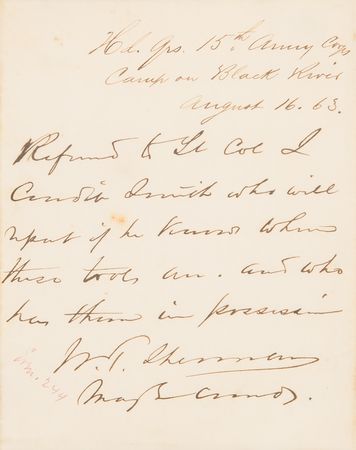 Hd. Qrs. 15th Army Corps
Camp on Black River
August 16. 63.
Referred to Lt Col J
Condit Smith who will
report if he knows where
these tools are. and who
has them in possession
W. T. Sherman
Maj Genl Comdg.